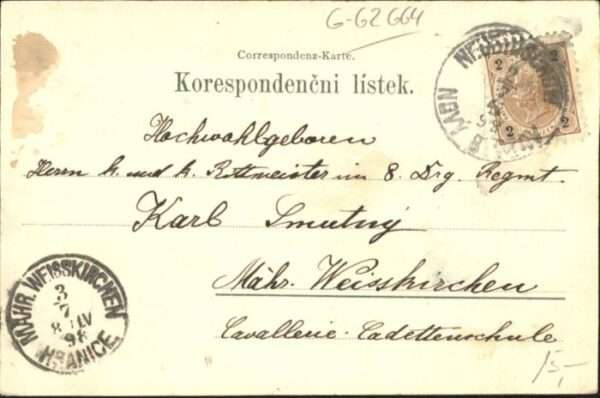 G-62664
Correspondenz-Karte.
Korespondenční lístek.
2 2
2 2
Hochwohlgeboren
Herrn k. und k. Rittmeister im 8. Drg. Regmt.
Karl Smutný
Mähr. Weisskirchen
Cavallerie-Cadettenschule
MÄHR. WEISSKIRCHEN
3
7
98
HRANICE
15,-